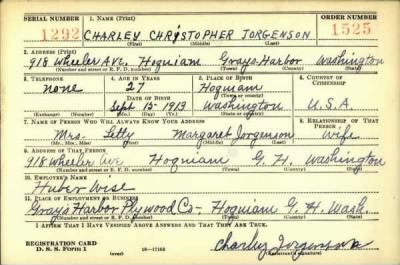 SERIAL NUMBER 1. NAME (Print) ORDER NUMBER
1292 CHARLEY CHRISTOPHER JORGENSON 1525
(First) (Middle) (Last)
2. ADDRESS (Print)
918 Wheeler Ave. Hoquiam Grays Harbor Washington
(Number and street or R. F. D. number) (Town) (County) (State)
3. TELEPHONE 4. AGE IN YEARS 5. PLACE OF BIRTH 6. COUNTRY OF CITIZENSHIP
none 27 Hoquiam
DATE OF BIRTH (Town or county)
Sept. 15-1913 Washington U.S.A.
(Exchange) (Number) (Mo.) (Day) (Yr.) (State or country)
7. NAME OF PERSON WHO WILL ALWAYS KNOW YOUR ADDRESS 8. RELATIONSHIP OF THAT PERSON
Mrs. Letty Margaret Jorgenson Wife
(Mr., Mrs., Miss) (First) (Middle) (Last)
9. ADDRESS OF THAT PERSON
918 Wheeler Ave Hoquiam G. H. Washington
(Number and street or R. F. D. number) (Town) (County) (State)
10. EMPLOYER'S NAME
Huber Wise
11. PLACE OF EMPLOYMENT OR BUSINESS
Grays Harbor Plywood Co- Hoquiam G. H. Wash.
(Number and street or R. F. D. number) (Town) (County) (State)
I AFFIRM THAT I HAVE VERIFIED ABOVE ANSWERS AND THAT THEY ARE TRUE.
REGISTRATION CARD
D. S. S. Form 1 16-17105 Charley Jorgenson
(Registrant's signature)